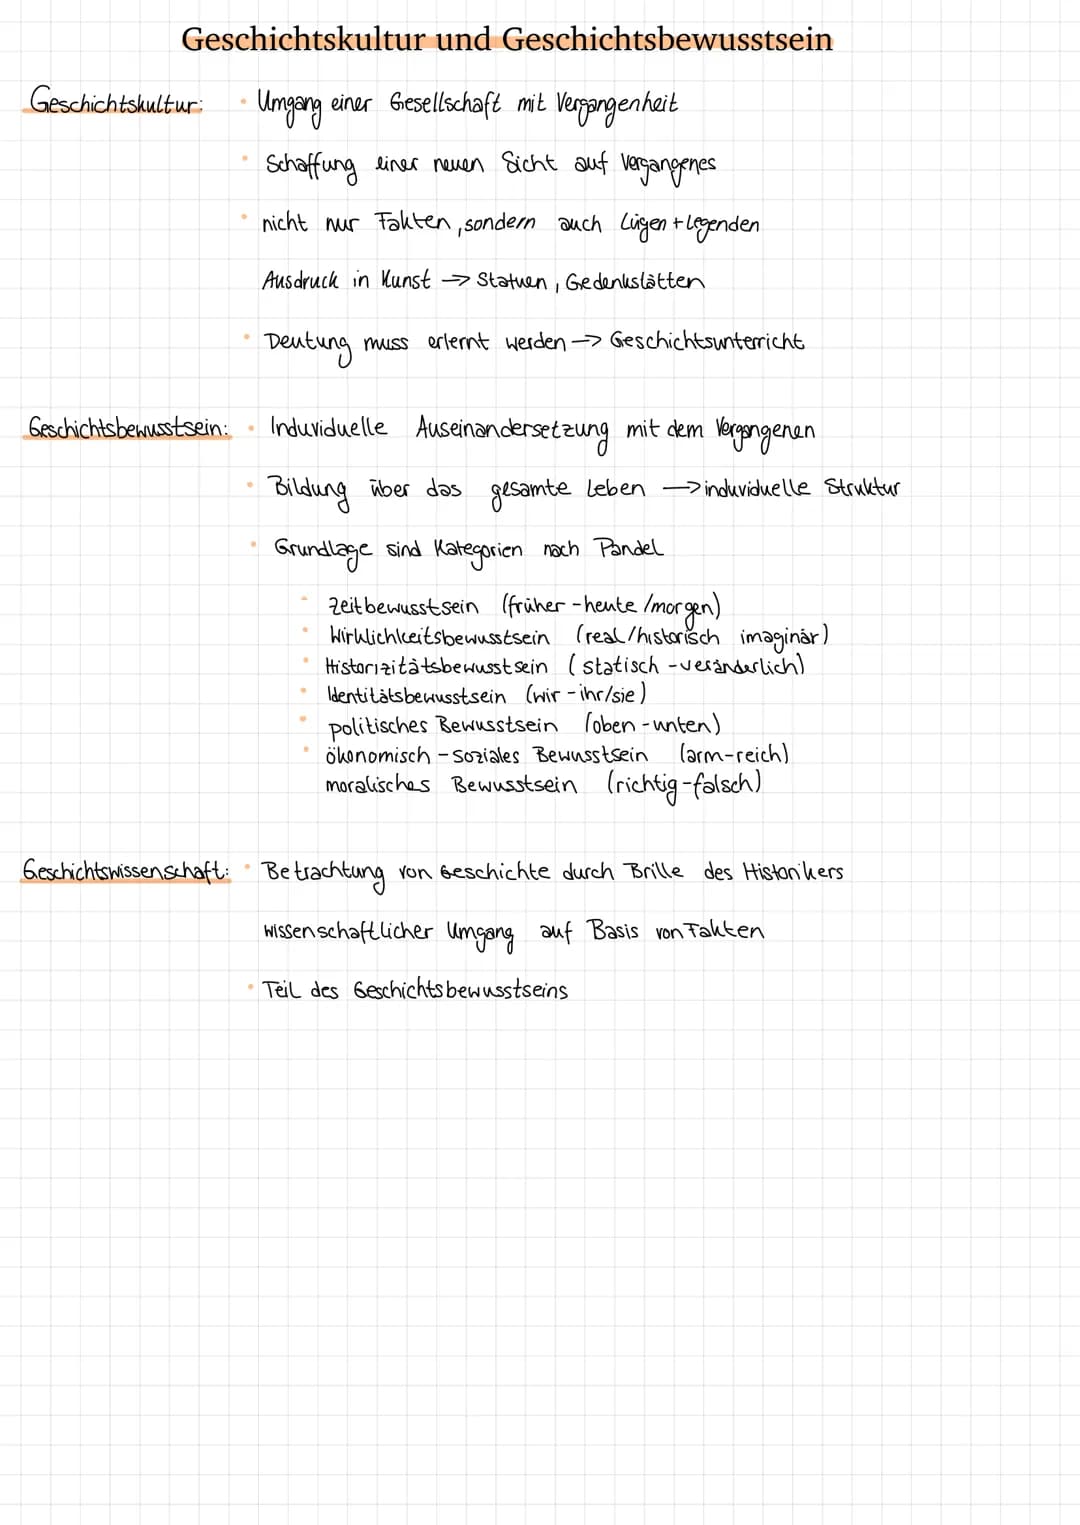 Geschichtskultur und Geschichtsbewusstsein
Geschichtskultur: • Umgang einer Gesellschaft mit Vergangenheit
• Schaffung einer neuen Sicht auf Vergangenes
• nicht nur Fakten, sondern auch Lügen + Legenden
Ausdruck in Kunst → Statuen, Gedenkstätten
• Deutung muss erlernt werden → Geschichtsunterricht
Geschichtsbewusstsein: • Induviduelle Auseinandersetzung mit dem Vergangenen
• Bildung über das gesamte Leben → induviduelle Struktur
• Grundlage sind Kategorien nach Pandel
• Zeitbewusstsein (früher - heute /morgen)
• Wirklichkeitsbewusstsein (real/historisch imaginär)
• Historizitätsbewusstsein (statisch - veränderlich)
• Identitätsbewusstsein (wir - ihr/sie)
• politisches Bewusstsein (oben - unten)
• ökonomisch - soziales Bewusstsein (arm-reich)
moralisches Bewusstsein (richtig-falsch)
Geschichtswissenschaft: • Betrachtung von Geschichte durch Brille des Historikers
wissenschaftlicher Umgang auf Basis von Fakten
• Teil des Geschichtsbewusstseins